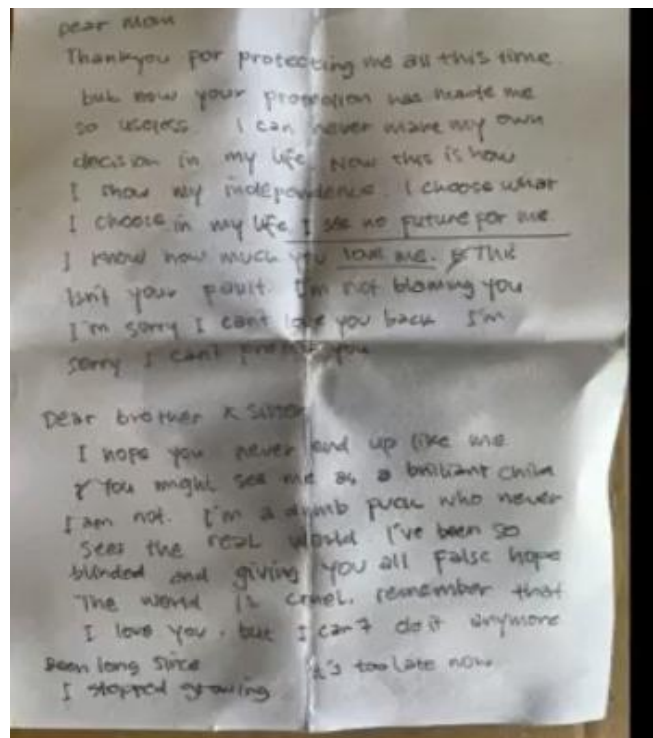 Dear Mom
Thankyou for protecting me all this time
but now your protection has made me
so useless. I can never make my own
decision in my life. Now this is how
I show my independence. I choose what
I choose in my life I see no future for me.
I know how much you love me. This
isn't your fault. I'm not blaming you
I'm sorry I can't love you back I'm
sorry I can't you
Dear brother & sister
I hope you never end up like me
You might see me as a brilliant child
I am not. I'm a dumb fuck who never
sees the real world I've been so
blinded and giving you all false hope
The world is cruel. remember that
I love you. but I can't do it anymore
Been long since it's too late now
I stopped growing